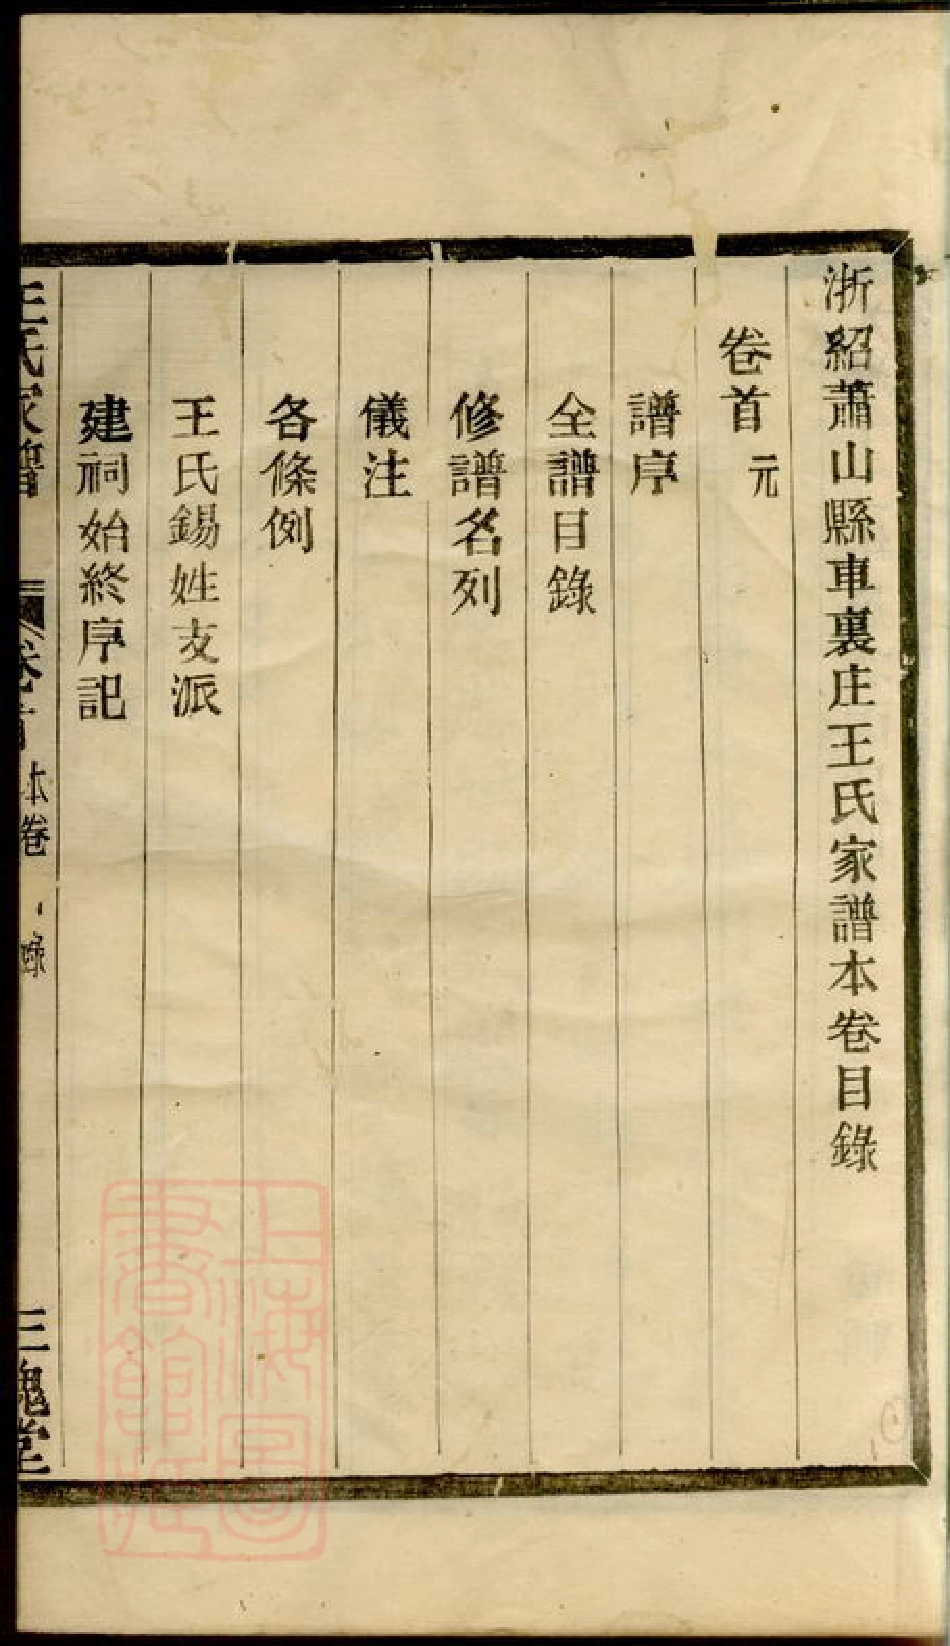 浙紹蕭山縣車裏庄王氏家譜本卷目錄
卷首 元
譜序
全譜目錄
修譜名列
儀注
各條例
王氏錫姓支派
建祠始終序記
王氏家譜
卷首 本卷 錄
三槐堂
上海圖書館藏